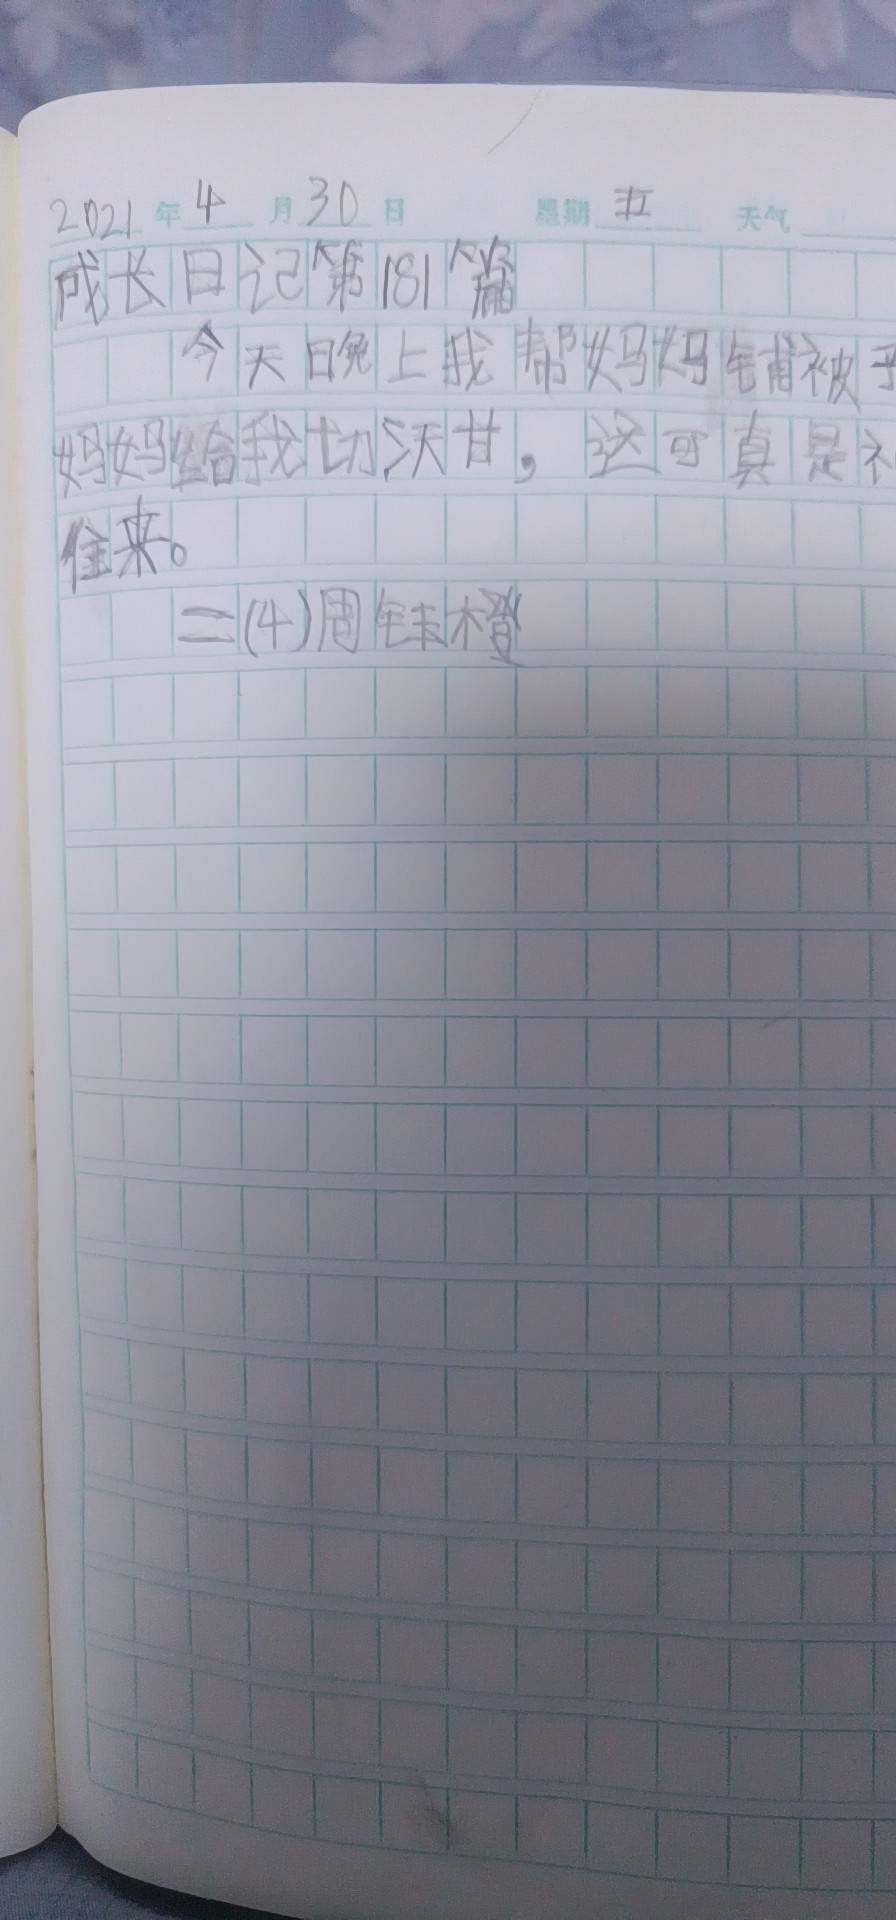 2021年4月30日 星期五 天气
成长日记第181篇
今天晚上我帮妈妈铺被子
妈妈给我切沃甘，这可真是礼
往来。
二(4)周橙